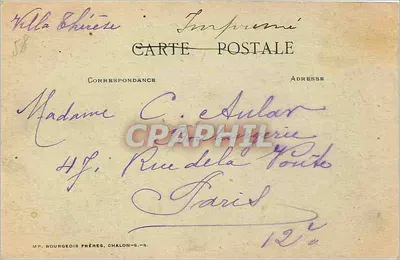 Villa Thérèse Imprimé
58
CARTE POSTALE
CORRESPONDANCE ADRESSE
Madame C. Aular
CPARAMA
47, Rue de la Voute
Paris
12e
IMP. BOURGEOIS FRÈRES, CHALON-S.-S.